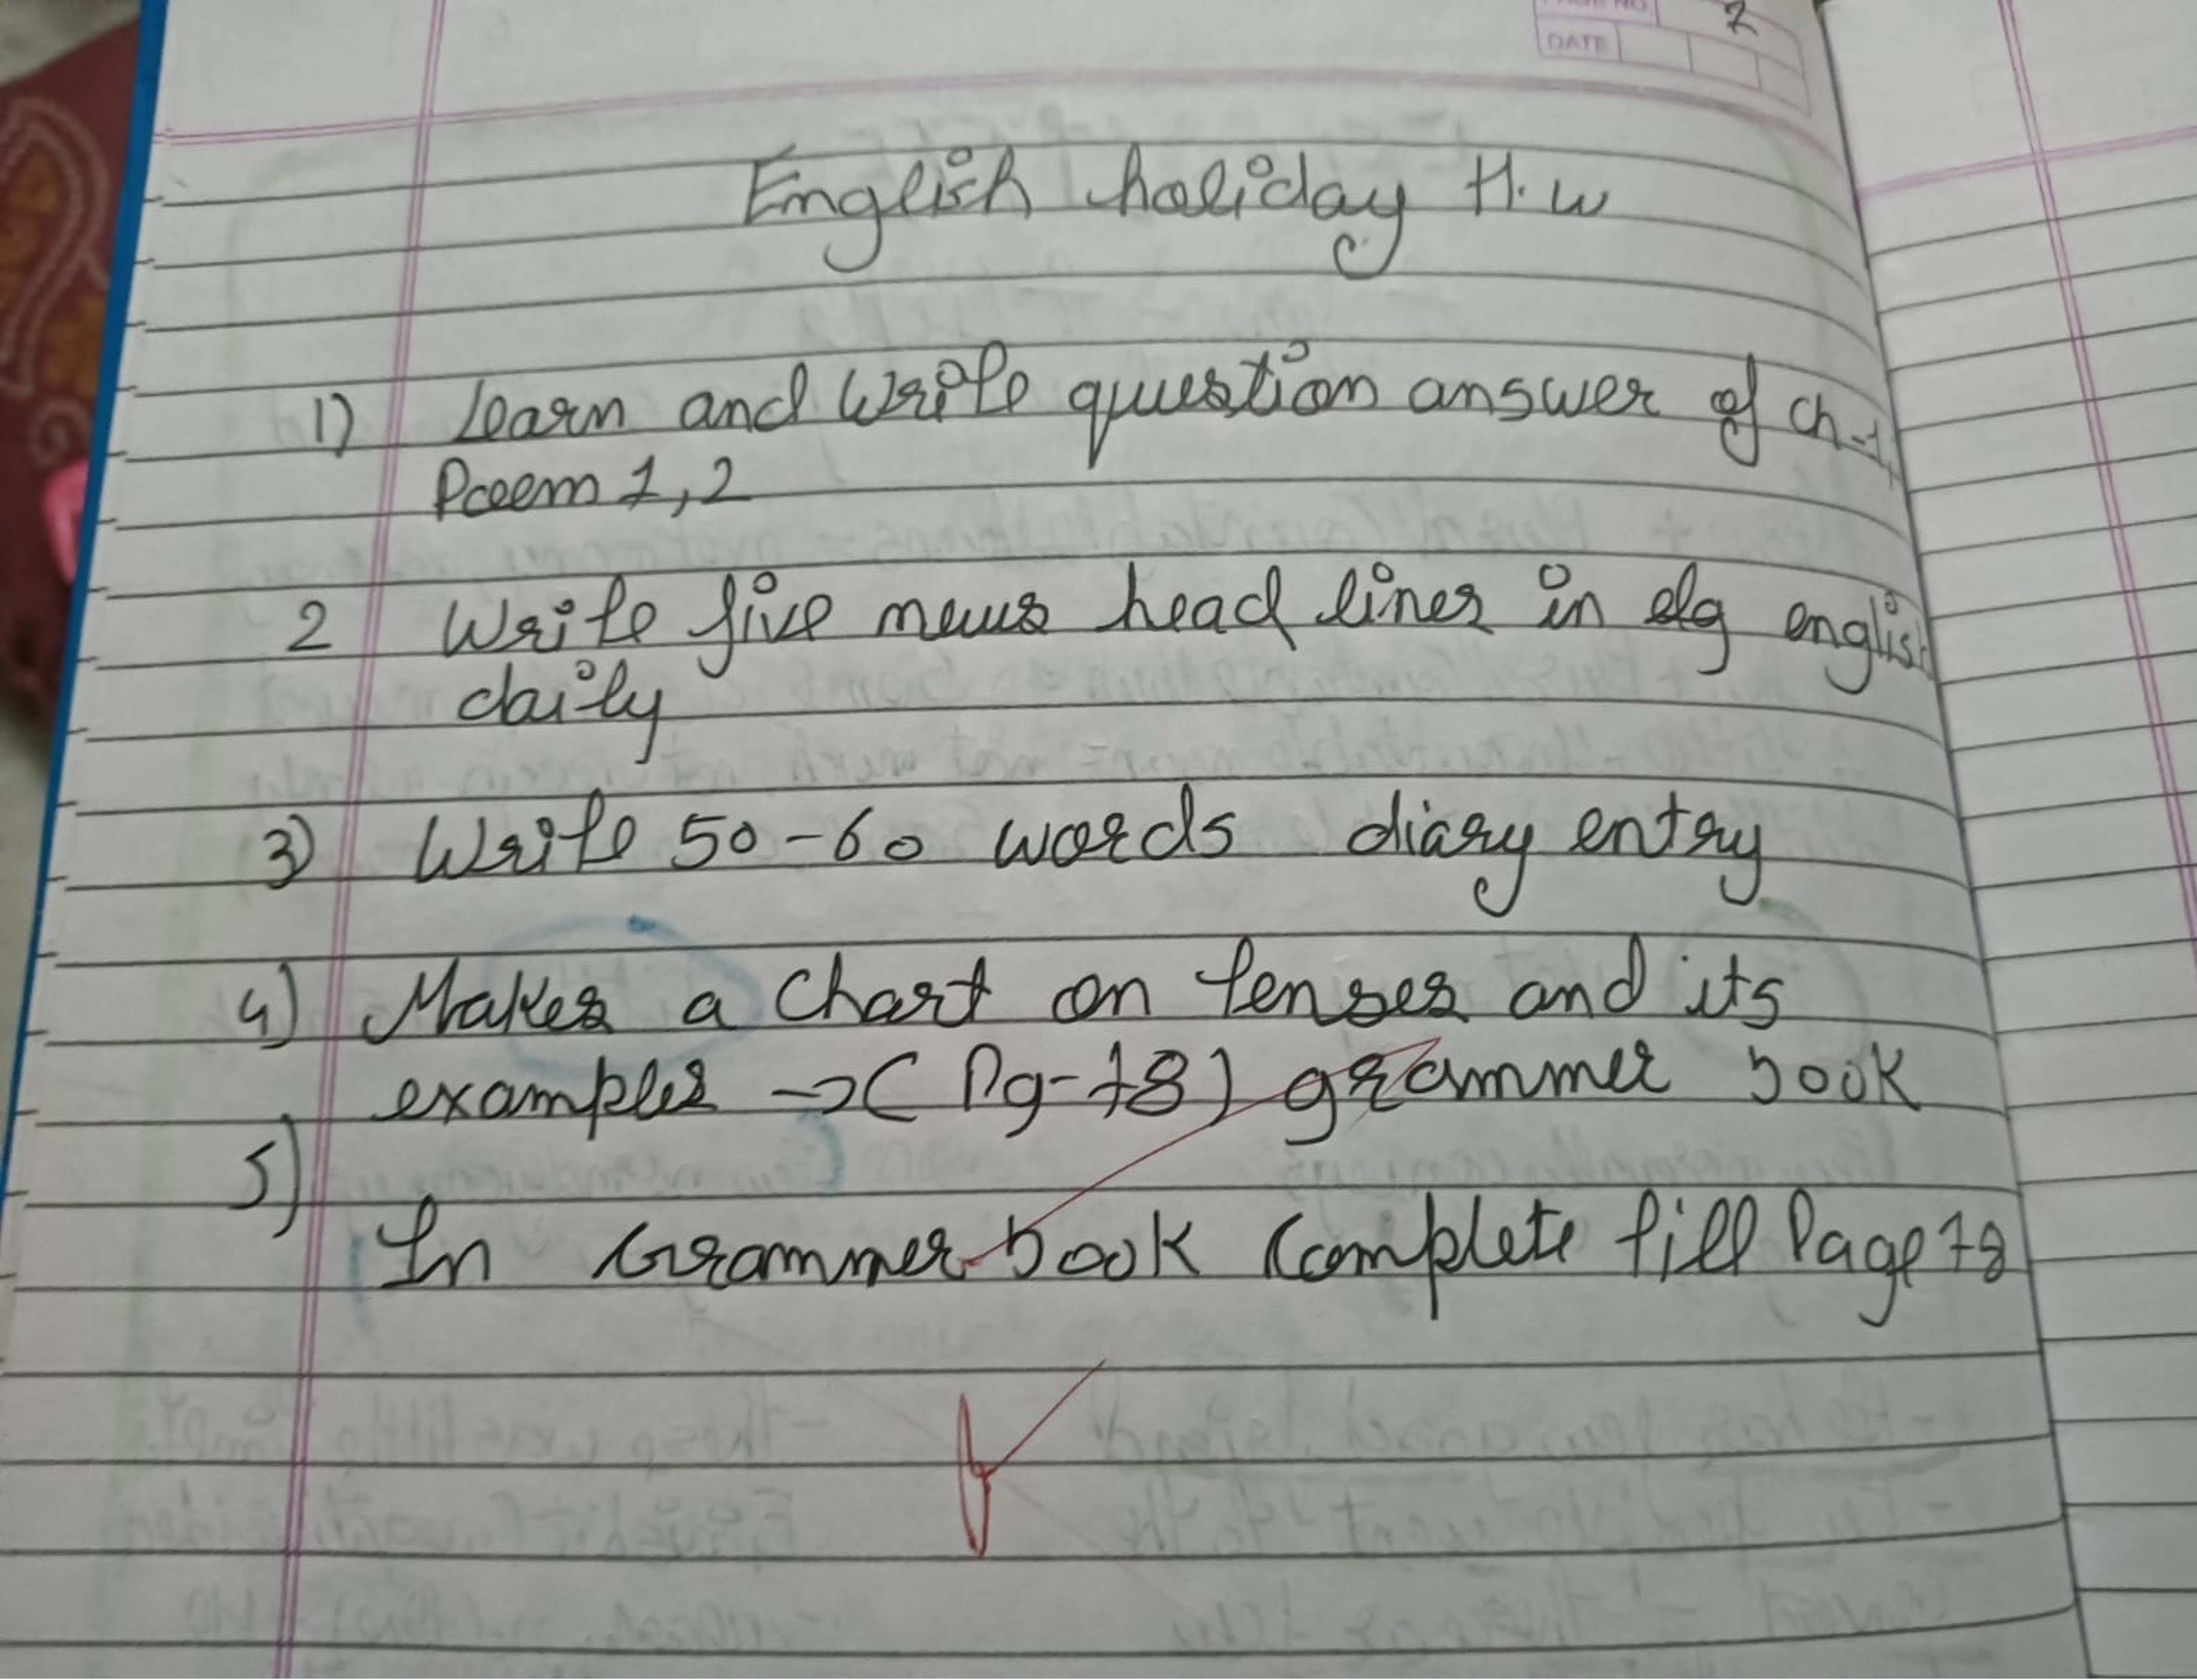 PAGE NO 7
DATE
English holiday H.w
1) Learn and Write question answer of ch-1,
Poeem 1,2
2 Write five news head lines in elg english
daily
3) Write 50-60 words diary entry
4) Makes a Chart on Tenses and its
examples → (Pg-78) grammer book
5)
In Grammer book Complete fill Page 78